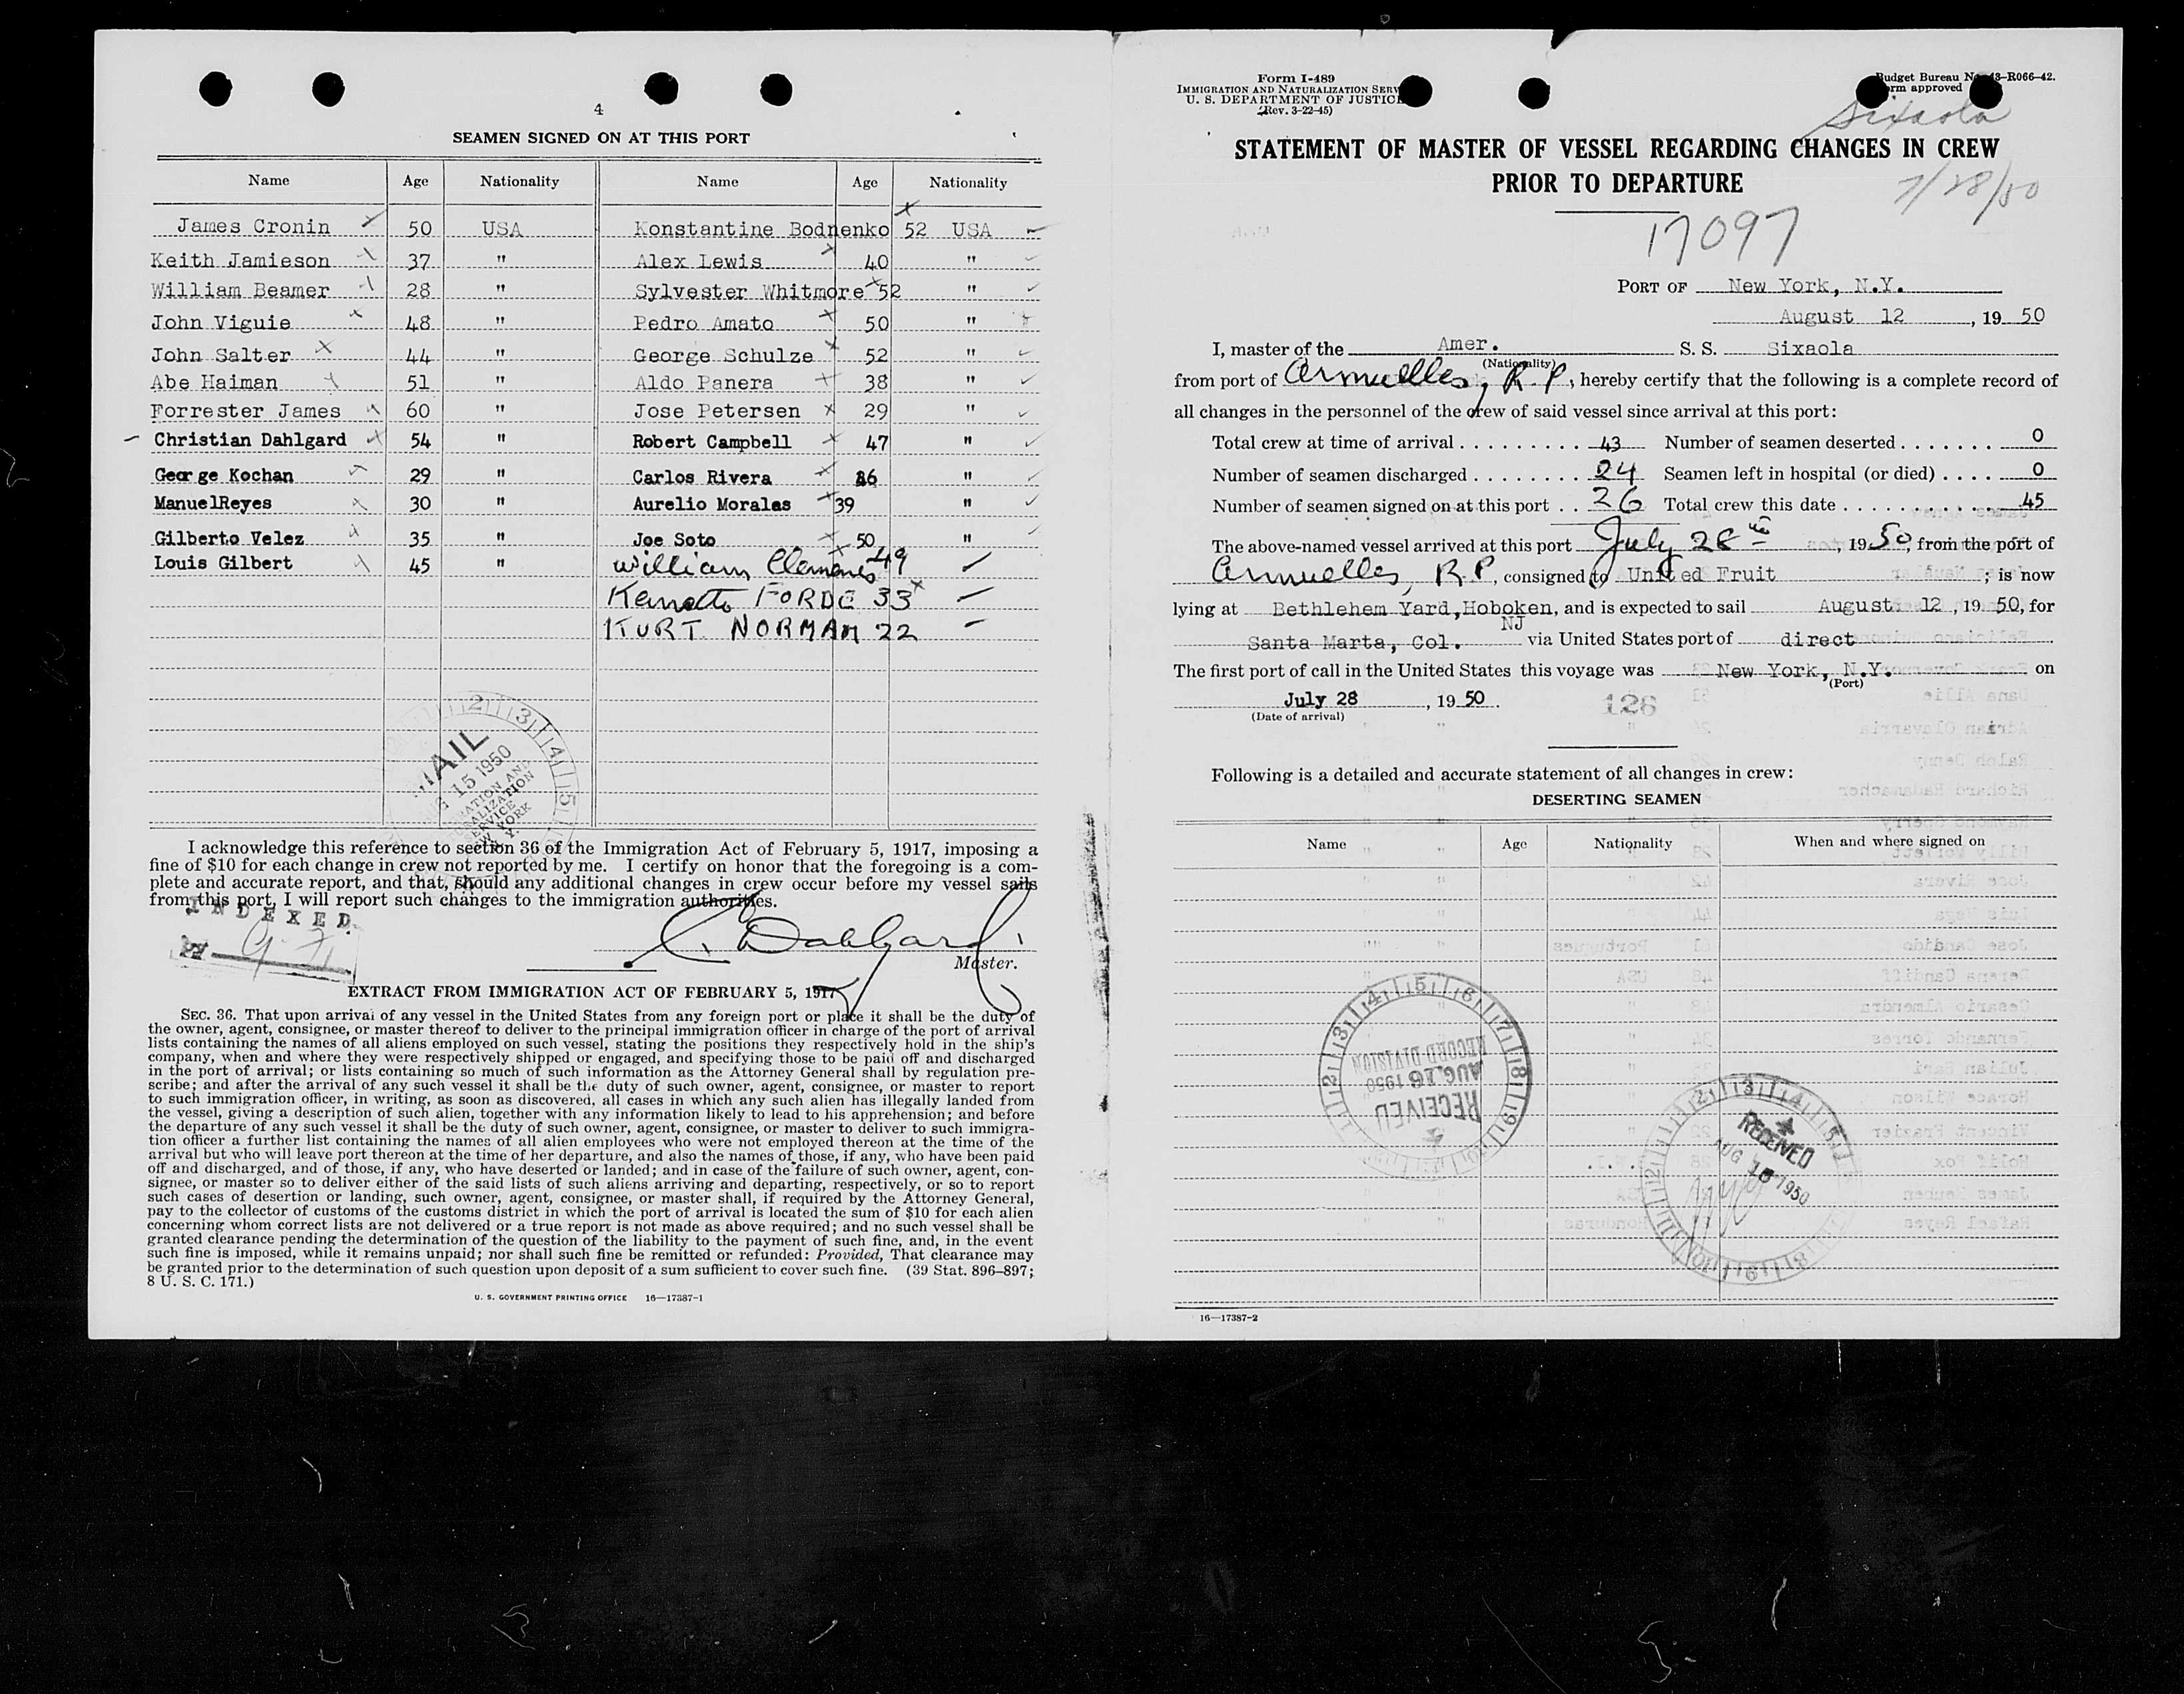 4
SEAMEN SIGNED ON AT THIS PORT
Name Age Nationality Name Age Nationality
James Cronin 50 USA Konstantine Bodnenko 52 USA
Keith Jamieson 37 " Alex Lewis 40 "
William Beamer 28 " Sylvester Whitmore 52 "
John Viguie 48 " Pedro Amato 50 "
John Salter 44 " George Schulze 52 "
Abe Haiman 51 " Aldo Panera 38 "
Forrester James 60 " Jose Petersen 29 "
Christian Dahlgard 54 " Robert Campbell 47 "
George Kochan 29 " Carlos Rivera 26 "
ManuelReyes 30 " Aurelio Morales 39 "
Gilberto Velez 35 " Joe Soto 50 "
Louis Gilbert 45 " William 49
FORDE 33
KURT NORMAN 22
MAIL
15 1950
I acknowledge this reference to section 36 of the Immigration Act of February 5, 1917, imposing a
fine of $10 for each change in crew not reported by me. I certify on honor that the foregoing is a com-
plete and accurate report, and that, should any additional changes in crew occur before my vessel sails
from this port, I will report such changes to the immigration authorities.
INDEXED
Master.
EXTRACT FROM IMMIGRATION ACT OF FEBRUARY 5, 1917
SEC. 36. That upon arrival of any vessel in the United States from any foreign port or place it shall be the duty of
the owner, agent, consignee, or master thereof to deliver to the principal immigration officer in charge of the port of arrival
lists containing the names of all aliens employed on such vessel, stating the positions they respectively hold in the ship's
company, when and where they were respectively shipped or engaged, and specifying those to be paid off and discharged
in the port of arrival; or lists containing so much of such information as the Attorney General shall by regulation pre-
scribe; and after the arrival of any such vessel it shall be the duty of such owner, agent, consignee, or master to report
to such immigration officer, in writing, as soon as discovered, all cases in which any such alien has illegally landed from
the vessel, giving a description of such alien, together with any information likely to lead to his apprehension; and before
the departure of any such vessel it shall be the duty of such owner, agent, consignee, or master to deliver to such immigra-
tion officer a further list containing the names of all alien employees who were not employed thereon at the time of the
arrival but who will leave port thereon at the time of her departure, and also the names of those, if any, who have been paid
off and discharged, and of those, if any, who have deserted or landed; and in case of the failure of such owner, agent, con-
signee, or master so to deliver either of the said lists of such aliens arriving and departing, respectively, or so to report
such cases of desertion or landing, such owner, agent, consignee, or master shall, if required by the Attorney General,
pay to the collector of customs of the customs district in which the port of arrival is located the sum of $10 for each alien
concerning whom correct lists are not delivered or a true report is not made as above required; and no such vessel shall be
granted clearance pending the determination of the question of the liability to the payment of such fine, and, in the event
such fine is imposed, while it remains unpaid; nor shall such fine be remitted or refunded: Provided, That clearance may
be granted prior to the determination of such question upon deposit of a sum sufficient to cover such fine. (39 Stat. 896-897;
8 U. S. C. 171.)
U. S. GOVERNMENT PRINTING OFFICE 16—17387-1
Form I-489
IMMIGRATION AND NATURALIZATION SERV
U. S. DEPARTMENT OF JUSTICE
(Rev. 3-22-45)
Budget Bureau No. 43-R066-42.
Form approved
Sixaola
STATEMENT OF MASTER OF VESSEL REGARDING CHANGES IN CREW
PRIOR TO DEPARTURE
7/28/50
17097
PORT OF New York, N.Y.
August 12, 19 50
I, master of the Amer. S. S. Sixaola
(Nationality)
from port of Armuelles, R.P., hereby certify that the following is a complete record of
all changes in the personnel of the crew of said vessel since arrival at this port:
Total crew at time of arrival 43 Number of seamen deserted 0
Number of seamen discharged 24 Seamen left in hospital (or died) 0
Number of seamen signed on at this port 26 Total crew this date 45
The above-named vessel arrived at this port July 28th, 1950, from the port of
Armuelles, R.P., consigned to United Fruit; is now
lying at Bethlehem Yard, Hoboken, NJ and is expected to sail August 12, 19 50, for
Santa Marta, Col. via United States port of direct
The first port of call in the United States this voyage was New York, N.Y. on
(Port)
July 28, 19 50.
(Date of arrival)
126
Following is a detailed and accurate statement of all changes in crew:
DESERTING SEAMEN
Name Age Nationality When and where signed on
RECEIVED
AUG 16 1950
RECORD DIVISION
RECEIVED
AUG 1950
16—17387-2